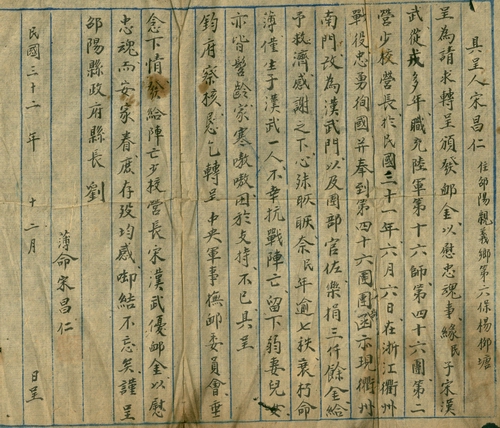 具呈人宋昌仁 住邵陽親義鄉第六保楊柳塘
呈為請求轉呈頒發卹金以慰忠魂事緣民子宋漢
武從戎多年職充陸軍第十六師第四十六團第二
營少校營長於民國三十一年六月六日在浙江衢州
戰役忠勇殉國并奉到第四十六團團函示現衢州
南門改為漢武門以及團部官佐樂捐三仟餘金給
予救濟感謝之下心殊眽眽奈民年逾七秩衰朽命
薄僅生子漢武一人不幸抗戰陣亡留下弱妻兒女
亦皆髫齡家寒嗷嗷困於支持不已具呈
鈞府察核懇乞轉呈中央軍事撫卹委員會垂
念下情發給陣亡少校營長宋漢武優卹金以慰
忠魂而安家眷庶存歿均感啣結不忘矣謹呈
邵陽縣政府縣長 劉
薄命宋昌仁
民國三十二年 十二月 日呈